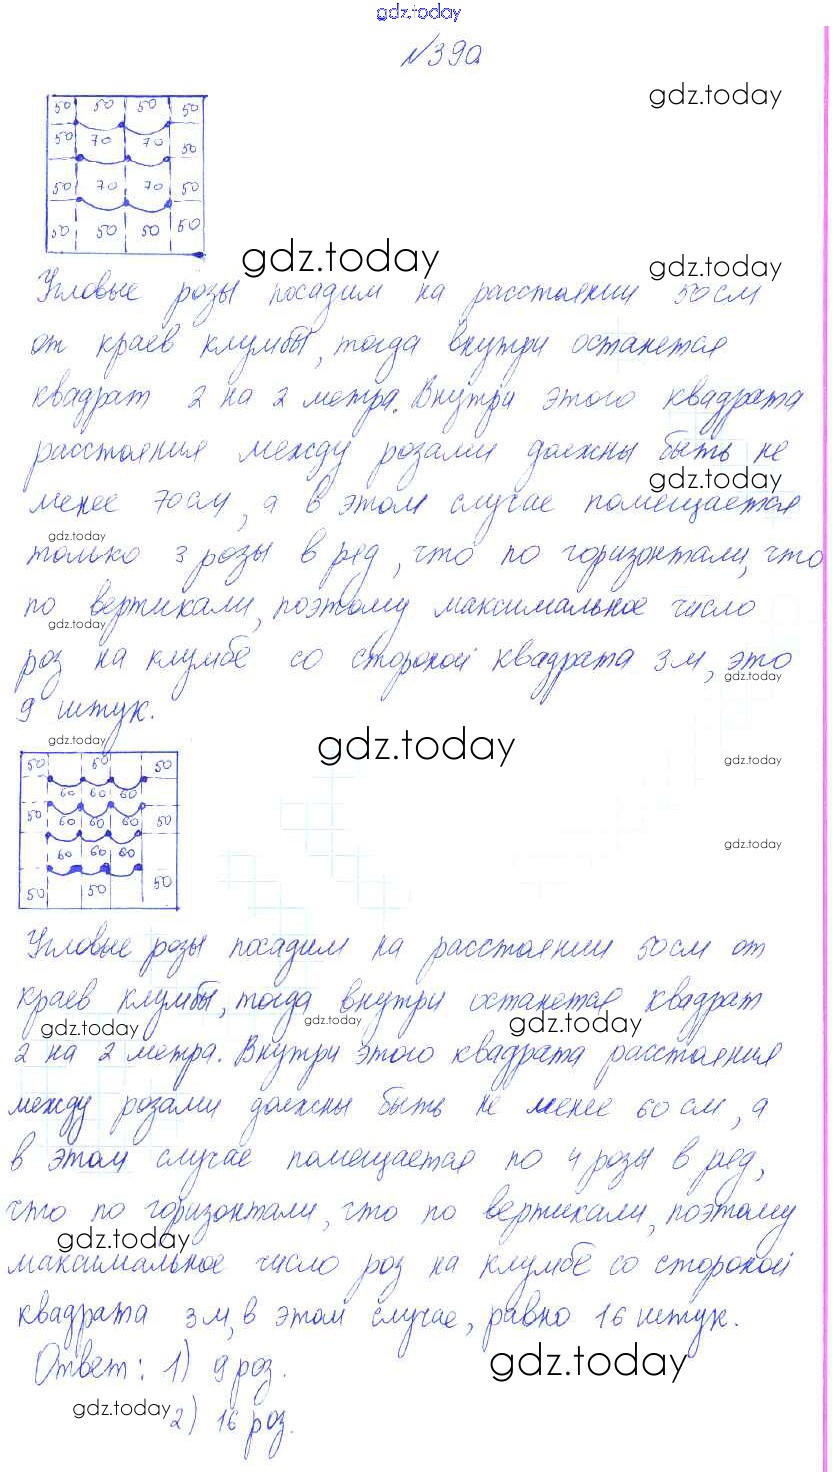 gdz.today
№39а
gdz.today
50 50 50 50
50 70 70 50
50 70 70 50
50 50 50 50
gdz.today
gdz.today
Угловые розы посадим на расстоянии 50 см
от краев клумбы, тогда внутри останется
квадрат 2 на 2 метра. Внутри этого квадрата
расстояния между розами должны быть не
gdz.today
менее 70 см, а в этом случае помещается
gdz.today
только 3 розы в ряд, что по горизонтали, что
по вертикали, поэтому максимальное число
gdz.today
роз на клумбе со стороной квадрата 3 м, это
gdz.today
9 штук.
gdz.today
gdz.today
gdz.today
50 50 50
60 60 60
50 60 60 60 50
60 60 60
50 50 50
gdz.today
Угловые розы посадим на расстоянии 50 см от
краев клумбы, тогда внутри останется квадрат
gdz.today gdz.today gdz.today
2 на 2 метра. Внутри этого квадрата расстояния
между розами должны быть не менее 60 см, а
в этом случае помещается по 4 розы в ряд,
что по горизонтали, что по вертикали, поэтому
gdz.today
максимальное число роз на клумбе со стороной
квадрата 3 м, в этом случае, равно 16 штук.
Ответ: 1) 9 роз.
gdz.today
gdz.today
2) 16 роз.